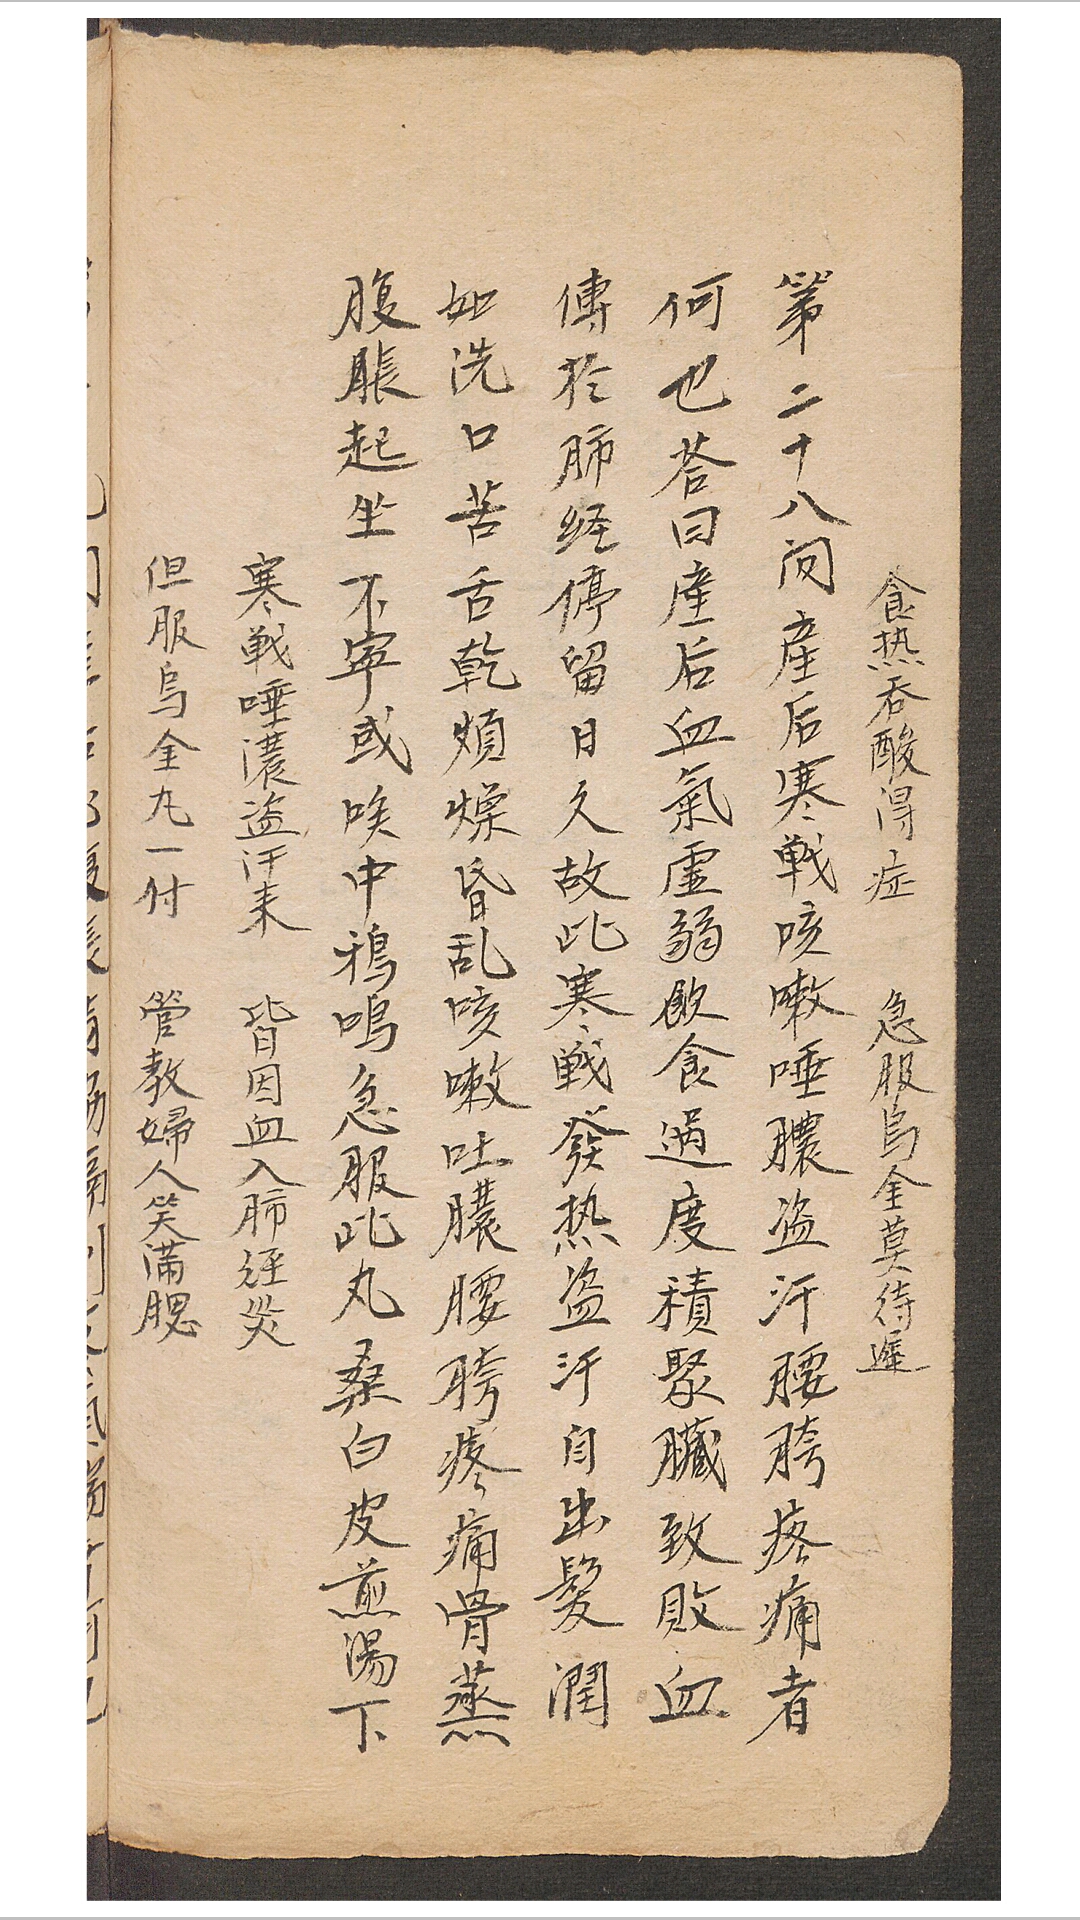 食热吞酸得症　急服烏金莫待遲
第二十八问産后寒戦咳嗽唾膿盗汗腰胯疼痛者
何也荅曰産后血氣虛弱飲食過度積聚臟致敗血
傳於肺経停留日久故此寒戦發热盗汗自出髪潤
如洗口苦舌乾煩燥昏乱咳嗽吐膿腰胯疼痛骨蒸
腹脹起坐不寧或唉中鴉鳴急服此丸桑白皮煎湯下
寒戦唾濃盗汗来　皆因血入肺经災
但服烏金丸一付　管教婦人笑滿腮